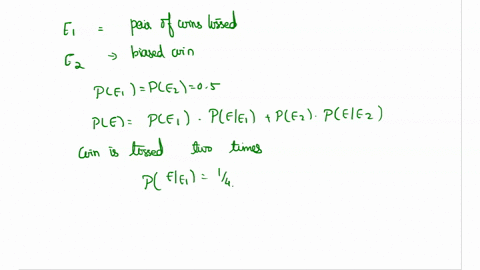 E1 = pair of coins tossed
E2 → biased coin
P(E1) = P(E2) = 0.5
P(E) = P(E1) . P(E/E1) + P(E2) . P(E/E2)
coin is tossed two times
P( E/E1) = 1/4.